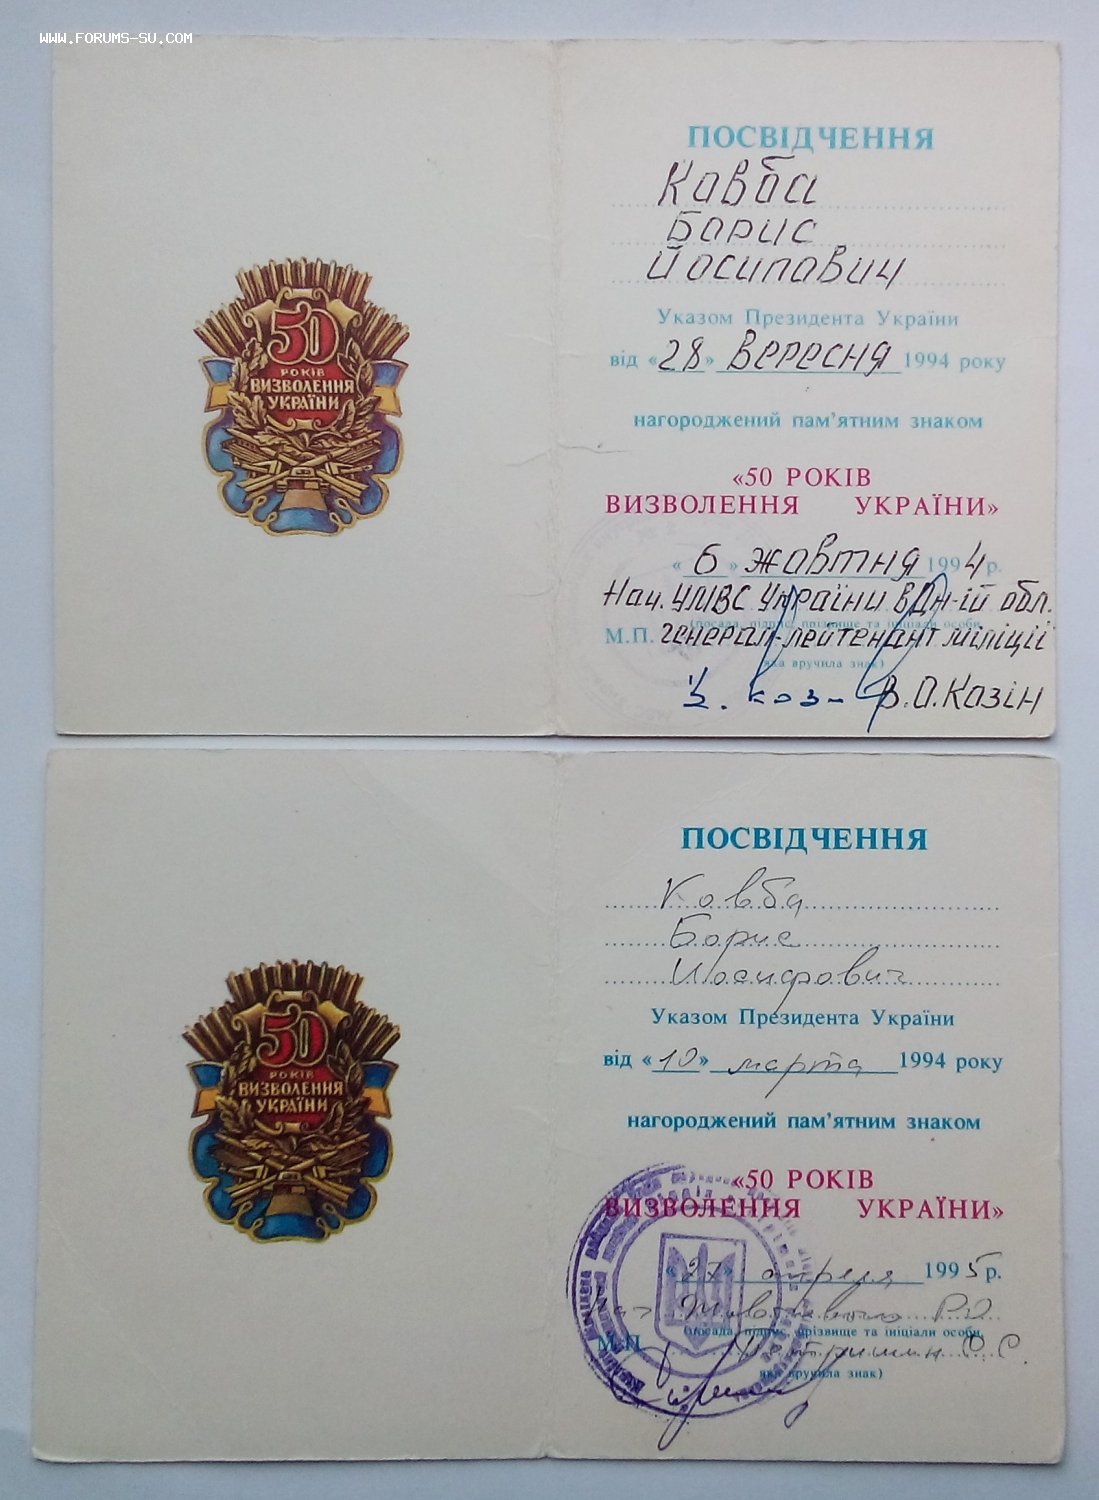 WWW.FORUMS-SU.COM
ПОСВІДЧЕННЯ
Ковба
Борис
Йосипович
Указом Президента України
від «28» вересня 1994 року
нагороджений пам’ятним знаком
«50 РОКІВ
ВИЗВОЛЕННЯ УКРАЇНИ»
«6» жовтня 1994 р.
Нач. УМВС України в Дн-ій обл.
(посада, підпис, прізвище та ініціали особи,
М.П. генерал-лейтенант міліції
яка вручила знак)
В.О.Козін
50
РОКІВ
ВИЗВОЛЕННЯ
УКРАЇНИ
ПОСВІДЧЕННЯ
Ковба
Борис
Иосифович
Указом Президента України
від «10» марта 1994 року
нагороджений пам’ятним знаком
«50 РОКІВ
ВИЗВОЛЕННЯ УКРАЇНИ»
«27» апреля 1995 р.
(посада, підпис, прізвище та ініціали особи,
М.П.
яка вручила знак)
50
РОКІВ
ВИЗВОЛЕННЯ
УКРАЇНИ